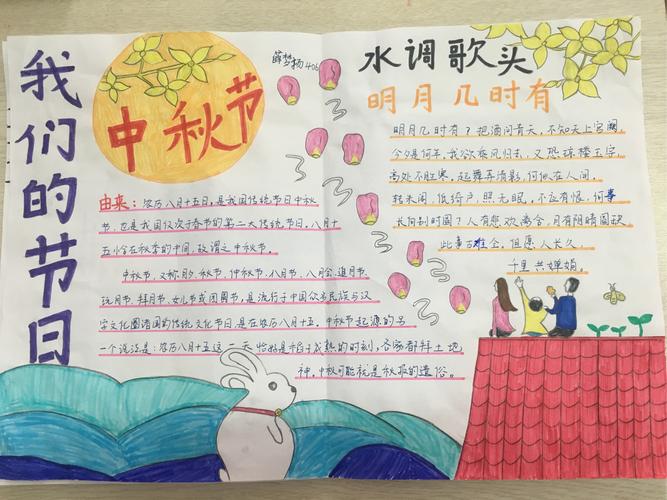 我们的节日
中秋节
由来：农历八月十五日，是我国传统节日中秋
节，也是我国仅次于春节的第二大传统节日。八月十
五恰在秋季的中间，故谓之中秋节。
中秋节，又称月夕、秋节、仲秋节、八月节、八月会、追月节、
玩月节、拜月节、女儿节或团圆节，是流行于中国众多民族与汉
字文化圈诸国的传统文化节日，是在农历八月十五。中秋节起源的另
一个说法是：农历八月十五这一天恰好是稻子成熟的时刻，各家都拜土地
神。中秋可能就是秋报的遗俗。
薛梦杨406
水调歌头
明月几时有
明月几时有？把酒问青天，不知天上宫阙，
今夕是何年。我欲乘风归去，又恐琼楼玉宇，
高处不胜寒。起舞弄清影，何似在人间。
转朱阁，低绮户，照无眠，不应有恨，何事
长向别时圆？人有悲欢离合，月有阴晴圆缺
此事古难全，但愿人长久，
千里共婵娟。